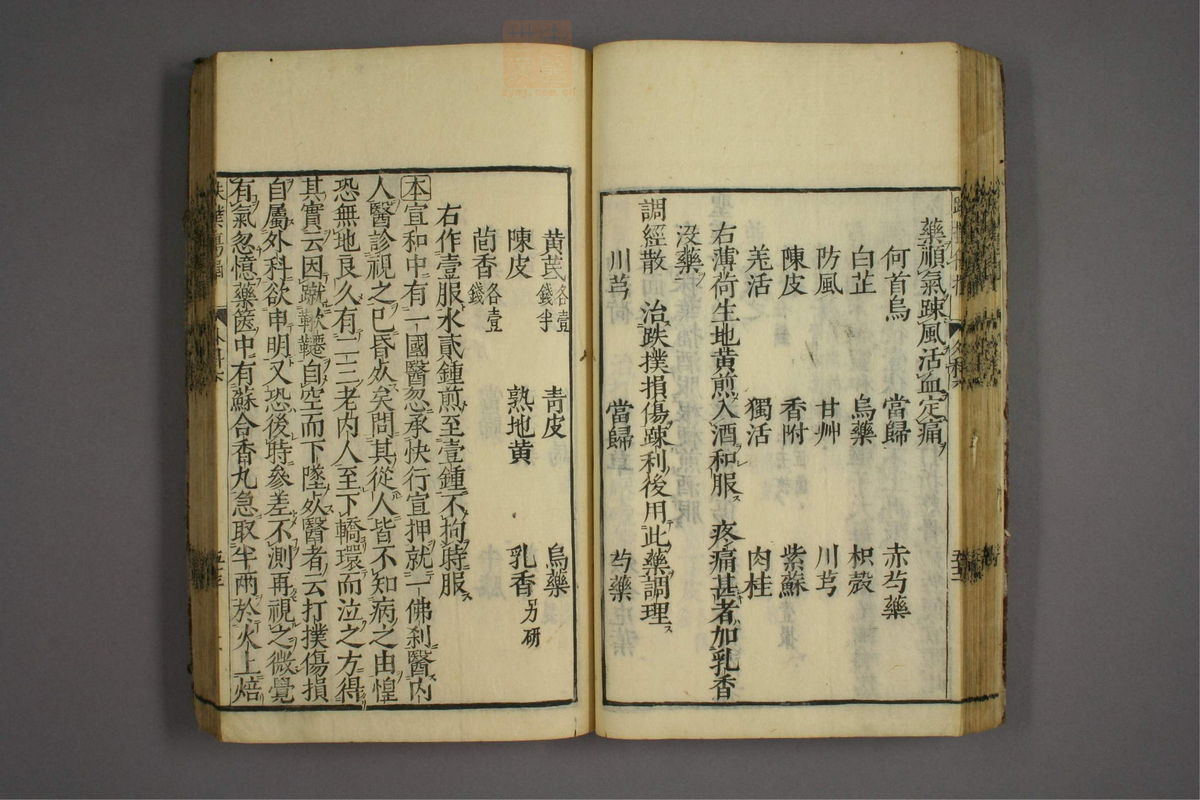 藥順氣踈風活血定痛
何首烏　當歸　赤芍藥
白芷　烏藥　枳殼
防風　甘艸　川芎
陳皮　香附　紫蘇
羌活　獨活　肉桂
右薄荷生地黄煎入酒和服　疼痛甚者加乳香
沒藥
調經散　治跌撲損傷踈利後用此藥調理
川芎　當歸　芍藥
黄芪各壹錢半　青皮　烏藥
陳皮　熟地黄　乳香另研
茴香各壹錢
右作壹服水貳鍾煎至壹鍾不拘時服
本宣和中有一國醫忽承快行宣押就一佛刹醫内
人醫診視之已昏死矣問其從人皆不知病之由惶
恐無地良久有二三老内人至下轎環而泣之方得
其實云因蹴鞦韆自空而下墜死醫者云打撲傷損
自屬外科欲申明又恐後時參差不測再視之微覺
有氣忽憶藥篋中有蘇合香丸急取半兩於火上焙